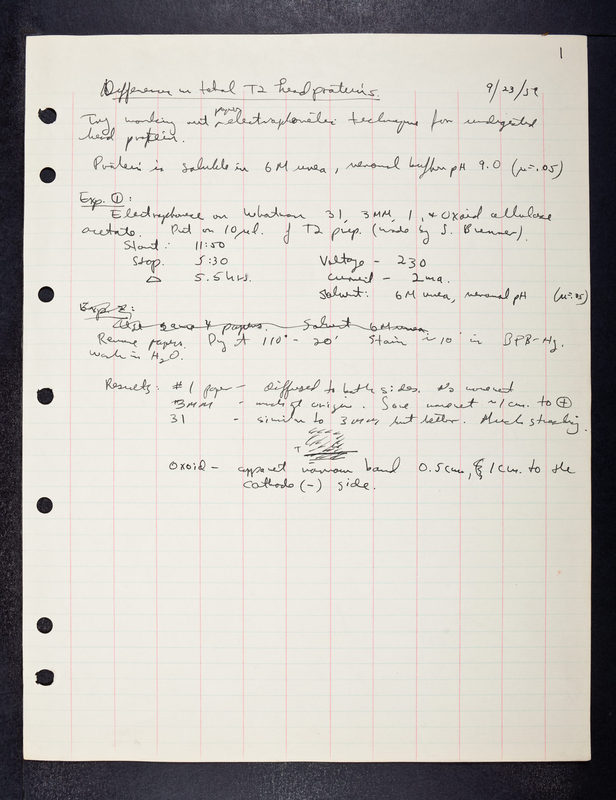 1
Difference in total T2 head proteins. 9/23/59
Try working out paper electrophoretic technique for undigested
head protein.
Protein is soluble in 6M urea, veronal buffer pH 9.0 (µ=.05)
Exp. ①:
Electrophorese on Whatman 31, 3MM, 1, + Oxoid cellulose
acetate. Put on 10µl. of T2 prep. (made by S. Brenner).
Start: 11:50
Stop. 5:30 Voltage - 230
△ 5.5 hrs. Current - 2ma.
Solvent: 6M urea, veronal pH (µ=.05)
Exp 2:
same 4 papers. Solvent 6M urea.
Remove papers. Dry at 110° - 20' Stain ~10' in BPB-Hg.
Wash in H2O.
Results: #1 paper - diffused to both sides. No movement
3MM - origin. Some movement ~1 cm. to ⊕
31 - similar to 3MM but better. Much streaking.
T
Oxoid - apparent narrow band 0.5cm, & 1 cm. to the
cathode (-) side.